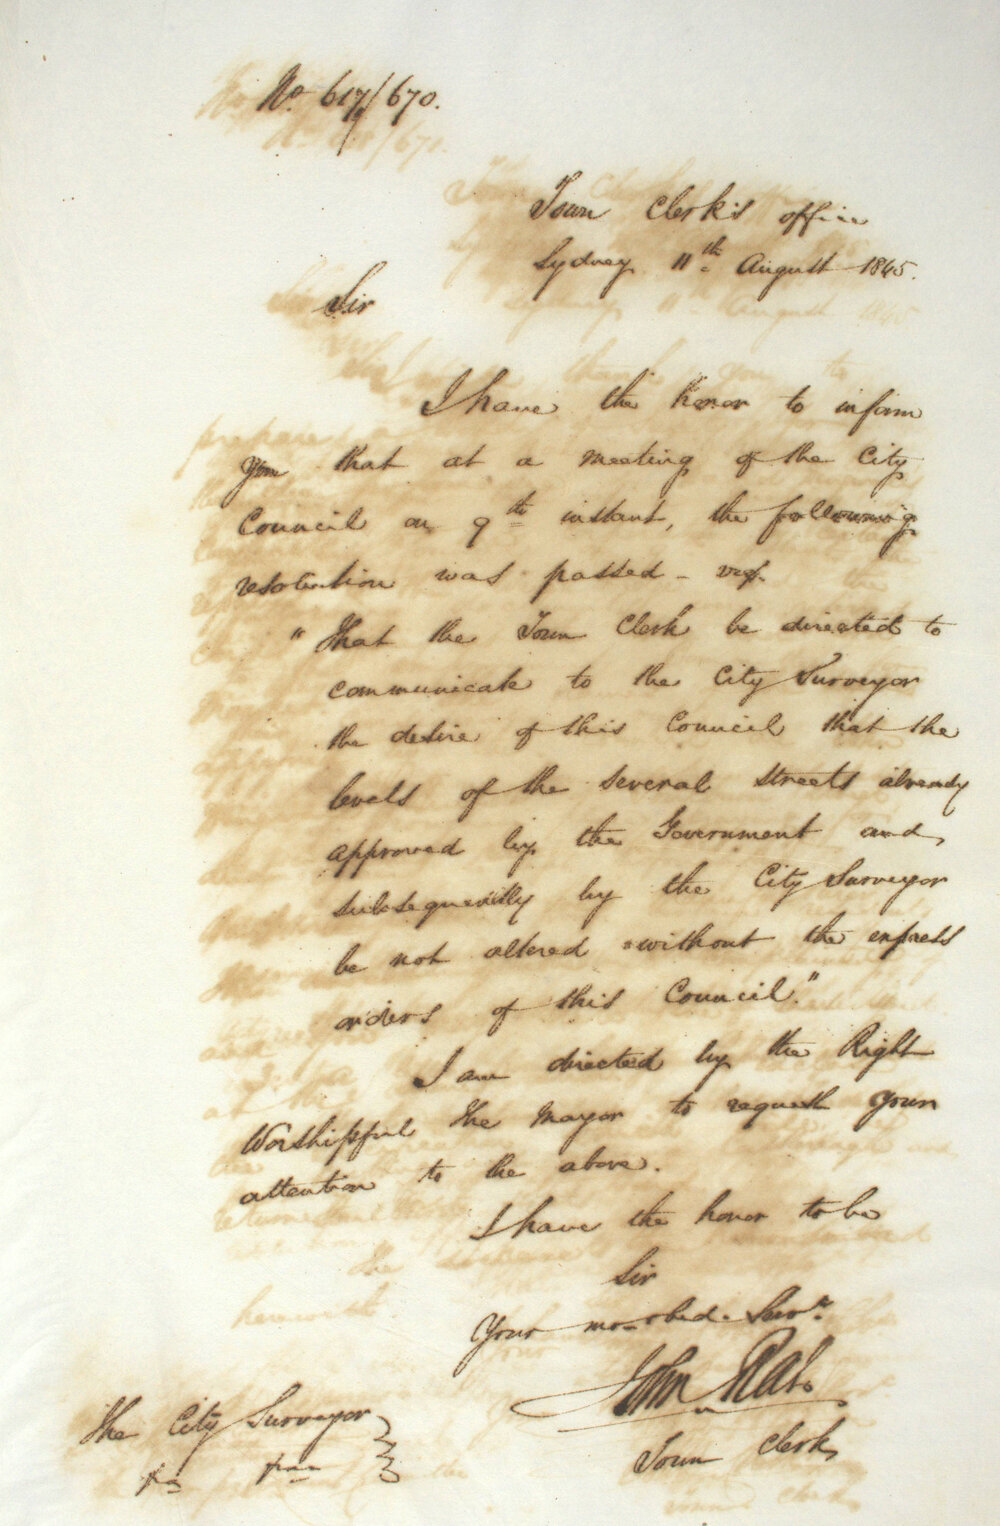 No. 617/670.
Town Clerk's office
Sydney 11th August 1845.
Sir
I have the honor to inform
you that at a meeting of the City
Council on 9th instant, the following
resolution was passed - viz.
"That the Town Clerk be directed to
communicate to the City Surveyor
the desire of this Council that the
levels of the several streets already
approved by the Government and
subsequently by the City Surveyor
be not altered without the express
orders of this Council."
I am directed by the Right
Worshipful the Mayor to request your
attention to the above.
I have the honor to be
Sir
Your mo. obed. Servt.
John Rae
Town Clerk
The City Surveyor